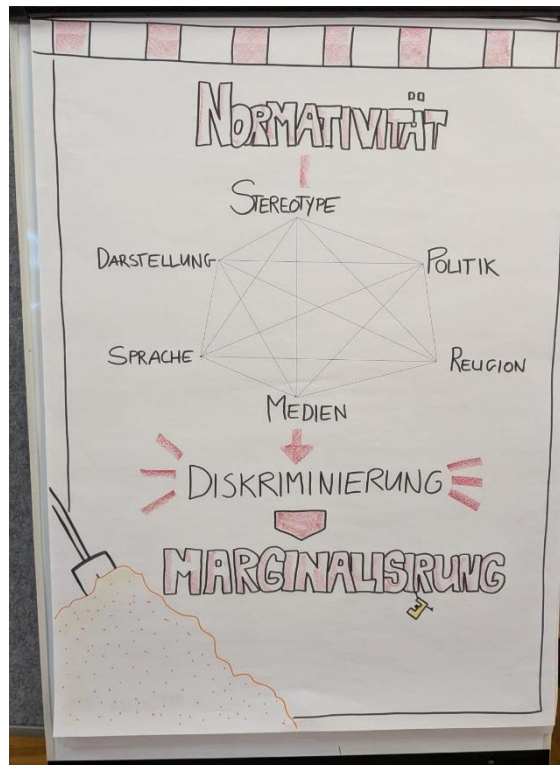 NORMATIVITÄT
STEREOTYPE
DARSTELLUNG POLITIK
SPRACHE RELIGION
MEDIEN
DISKRIMINIERUNG
MARGINALISIRUNG
E